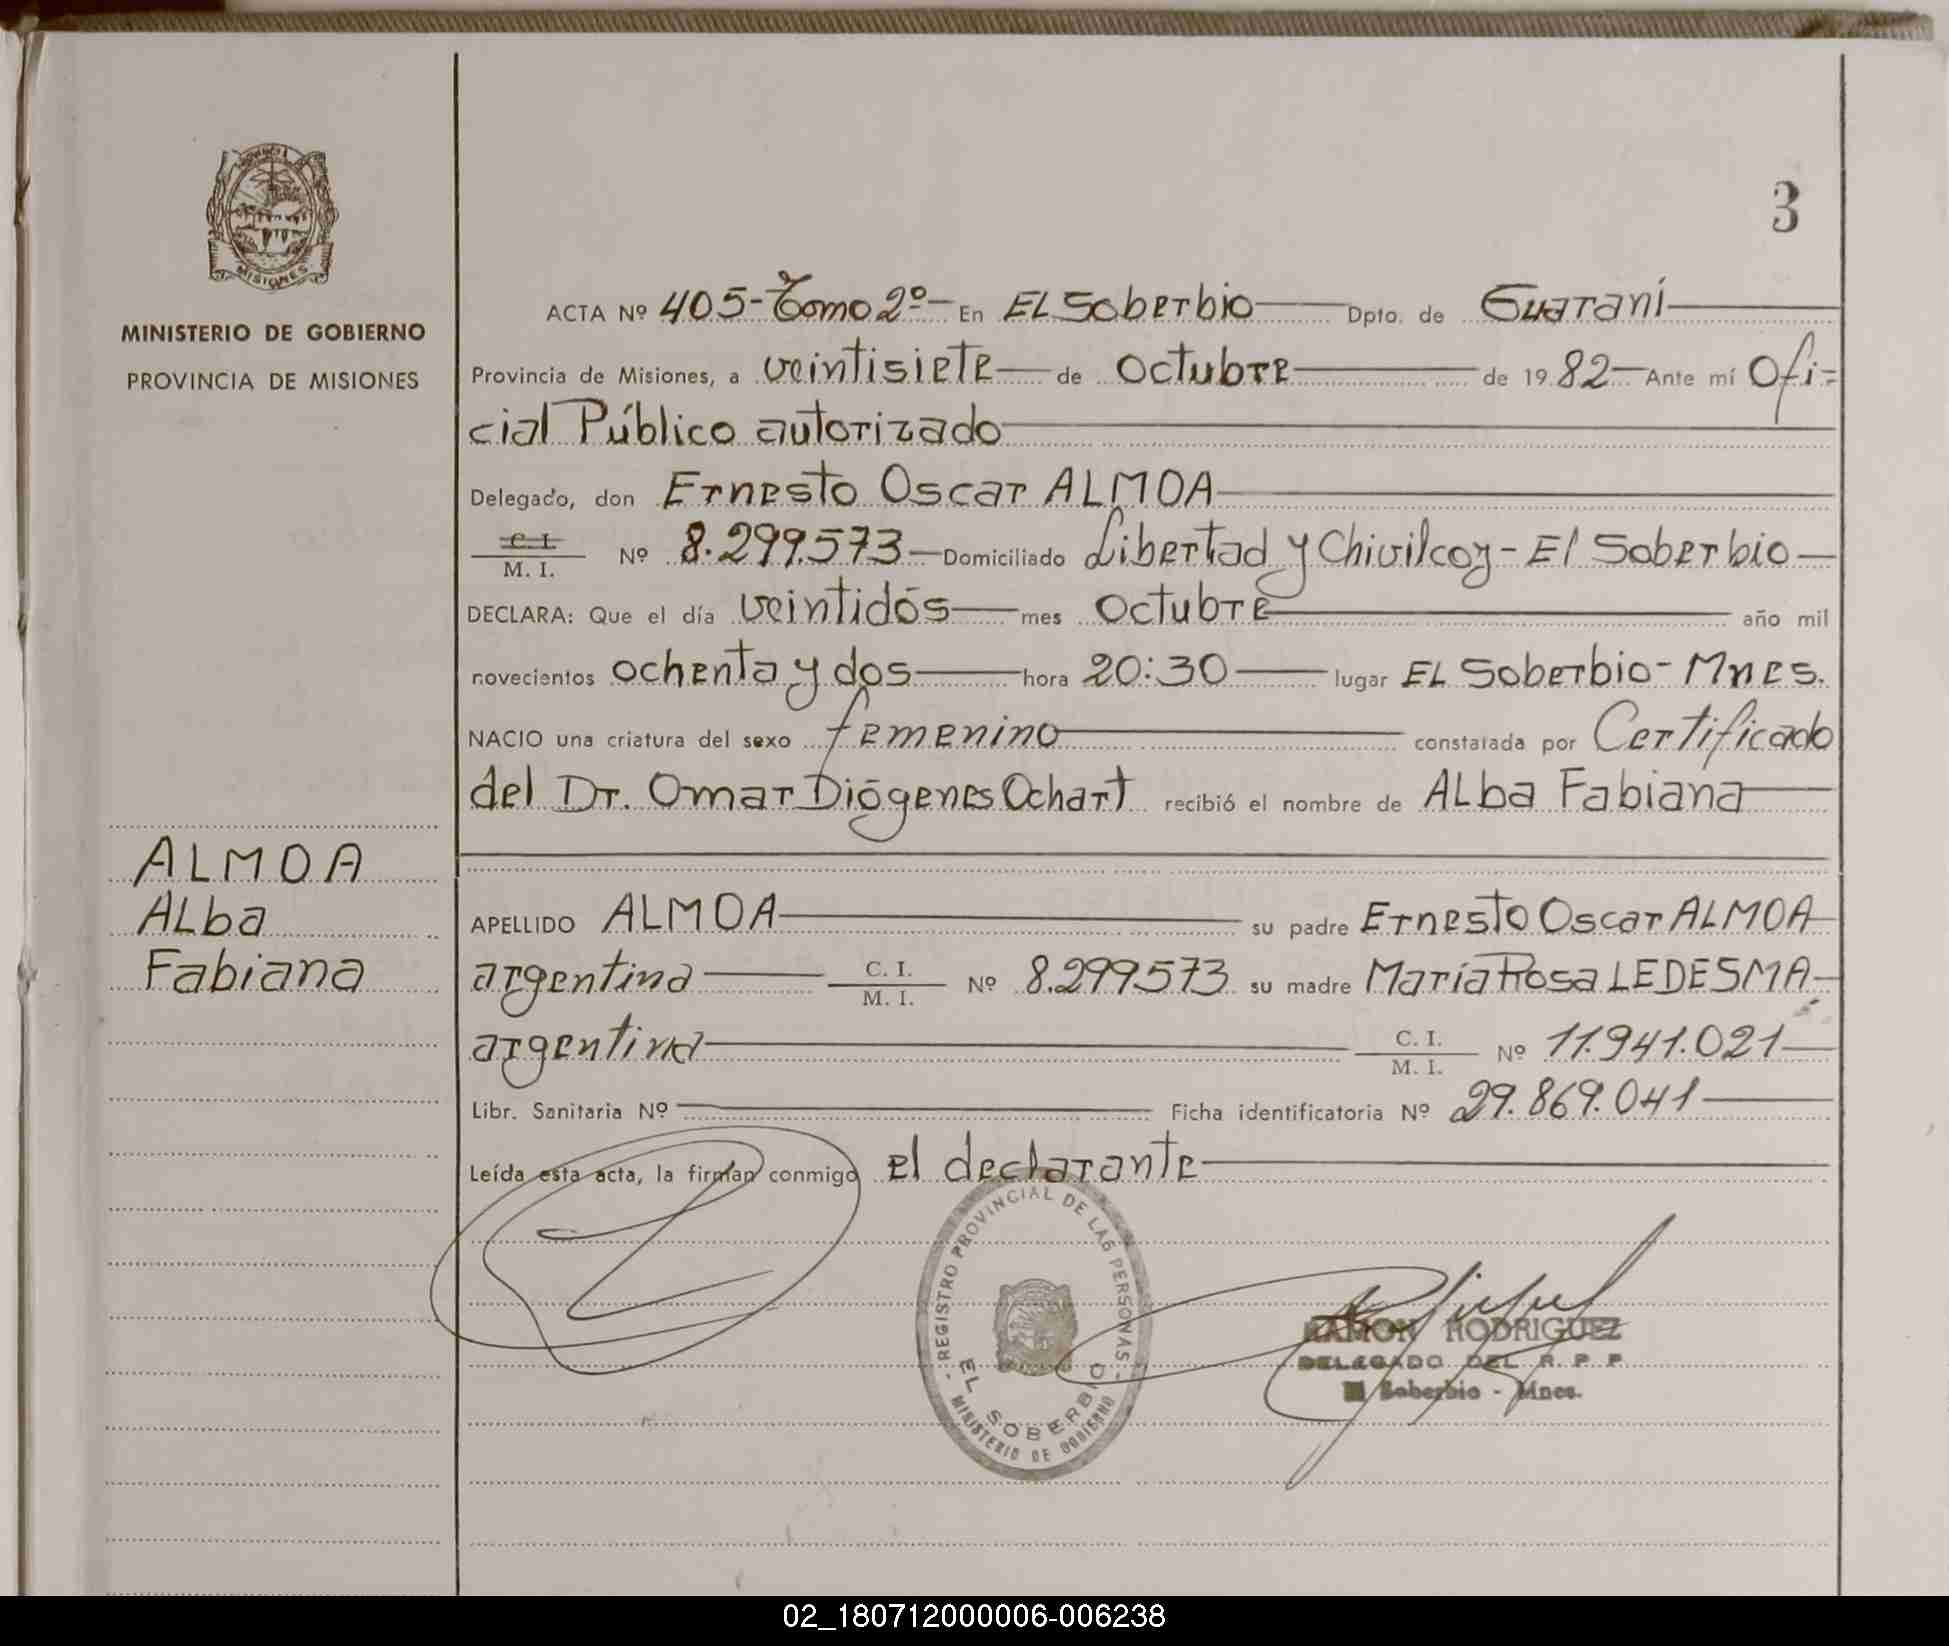 3
PROVINCIA
MISIONES
MINISTERIO DE GOBIERNO
PROVINCIA DE MISIONES
ACTA Nº 405-Tomo 2º- En EL Soberbio Dpto. de Guaraní
Provincia de Misiones, a veintisiete de octubre de 1982 Ante mí Ofi-
cial Público autorizado
Delegado, don Ernesto Oscar ALMOA
C. I.
M. I. Nº 8.299.573 Domiciliado Libertad y Chivilcoy - El Soberbio
DECLARA: Que el día veintidós mes octubre año mil
novecientos ochenta y dos hora 20:30 lugar EL Soberbio - Mnes.
NACIO una criatura del sexo femenino constatada por Certificado
del Dr. Omar Diógenes Ochart recibió el nombre de ALba Fabiana
ALMOA
ALba
Fabiana
APELLIDO ALMOA su padre Ernesto Oscar ALMOA
argentina C. I. M. I. Nº 8.299.573 su madre María Rosa LEDESMA
argentina C. I. M. I. Nº 11.941.021
Libr. Sanitaria Nº Ficha identificatoria Nº 29.869.041
Leída esta acta, la firman conmigo el declarante
REGISTRO PROVINCIAL DE LAS PERSONAS
EL SOBERBIO
MINISTERIO DE GOBIERNO
RAMON RODRIGUEZ
DELEGADO DEL R. P. P.
El Soberbio - Mnes.
02_180712000006-006238